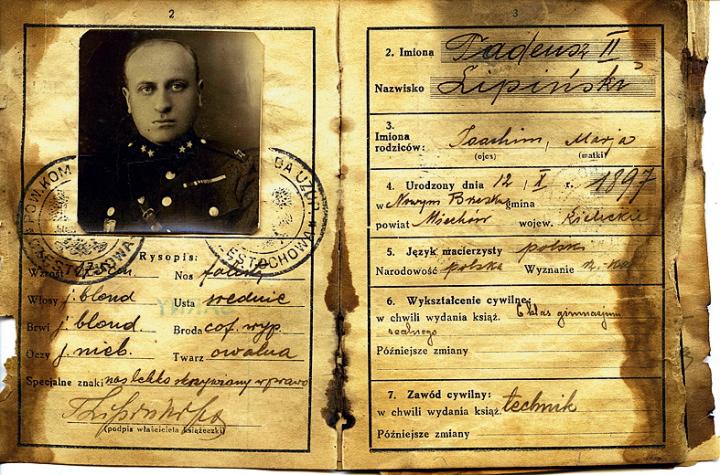 2
CZĘSTOCHOWA
CZĘSTOCHOWA
Rysopis:
Wzrost cm Nos falisty
Włosy j. blond Usta średnie
Brwi j. blond Broda cof. wyp.
Oczy j. nieb. Twarz owalna
Specjalne znaki nos lekko skrzywiany w prawo
(podpis właściciela książeczki)
3
2. Imiona Tadeusz II
Nazwisko Lipiński
3.
Imiona
rodziców: Joachim, Marja
(ojca) (matki)
4. Urodzony dnia 12/X r. 1897
w Nowym Brzesku gmina
powiat Miechów wojew. Kieleckie
5. Język macierzysty polski
Narodowość polska Wyznanie rz.-kat.
6. Wykształcenie cywilne:
w chwili wydania książ. 6 klas gimnazjum
realnego
Późniejsze zmiany
7. Zawód cywilny:
w chwili wydania książ. technik
Późniejsze zmiany